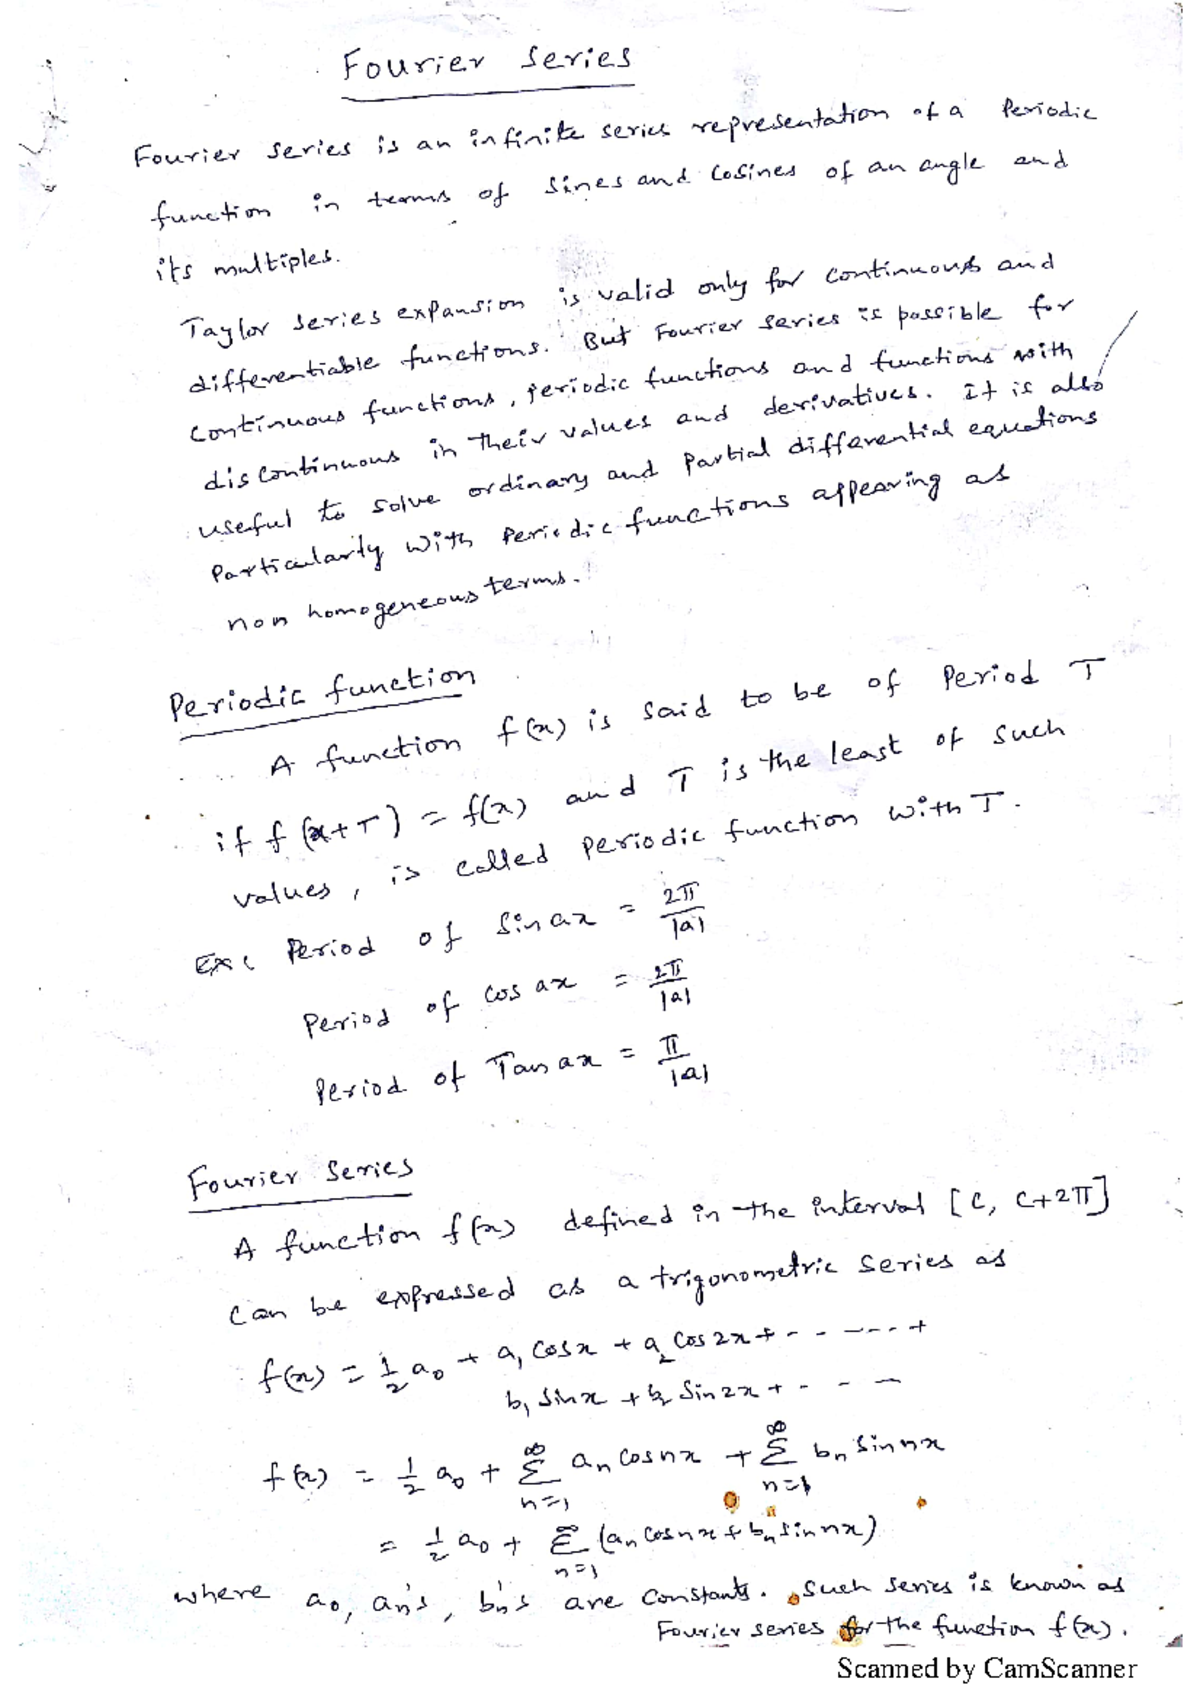 Fourier Series
Fourier series is an infinite series representation of a Periodic
function in terms of sines and cosines of an angle and
its multiples.
Taylor series expansion is valid only for continuous and
differentiable functions. But Fourier series is possible for
continuous functions, periodic functions and functions with
discontinuous in their values and derivatives. It is also
useful to solve ordinary and partial differential equations
Particularly with Periodic functions appearing as
non homogeneous terms.
Periodic function
A function f(x) is said to be of Period T
if f(x+T) = f(x) and T is the least of such
values, is called periodic function with T.
Ex: Period of Sin ax = 2π/|a|
Period of cos ax = 2π/|a|
Period of Tan ax = π/|a|
Fourier Series
A function f(x) defined in the interval [C, C+2π]
can be expressed as a trigonometric series as
f(x) = 1/2 a₀ + a₁ cosx + a₂ cos 2x + - - ---- +
b₁ sinx + b₂ sin 2x + - - -
f(x) = 1/2 a₀ + ∑_{n=1}^{∞} aₙ cosnx + ∑_{n=1}^{∞} bₙ sin nx
= 1/2 a₀ + ∑_{n=1}^{∞} (aₙ cosnx + bₙ sinnx)
where a₀, aₙ's, bₙ's are constants. Such series is known as
Fourier series for the function f(x).
Scanned by CamScanner